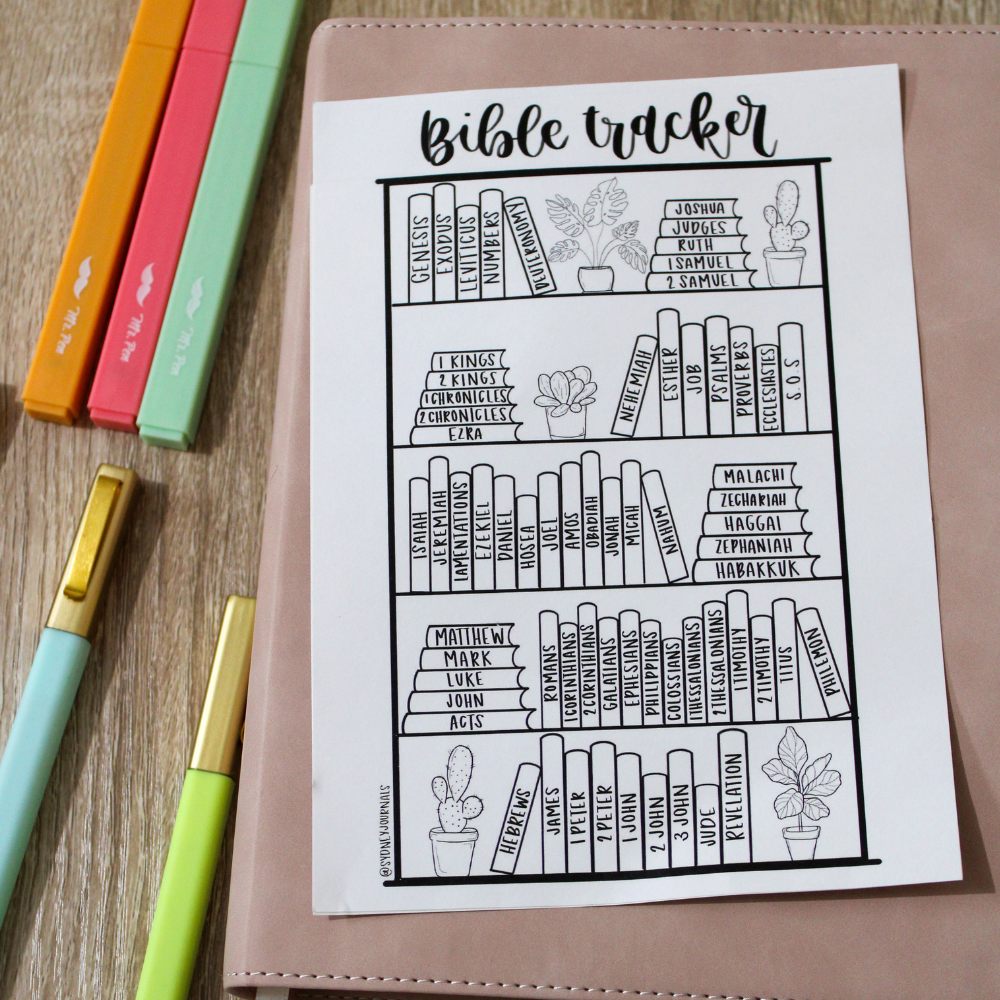 Bible tracker
GENESIS
EXODUS
LEVITICUS
NUMBERS
DEUTERONOMY
JOSHUA
JUDGES
RUTH
1 SAMUEL
2 SAMUEL
1 KINGS
2 KINGS
1 CHRONICLES
2 CHRONICLES
EZRA
NEHEMIAH
ESTHER
JOB
PSALMS
PROVERBS
ECCLESIASTES
S.O.S
ISAIAH
JEREMIAH
LAMENTATIONS
EZEKIEL
DANIEL
HOSEA
JOEL
AMOS
OBADIAH
JONAH
MICAH
NAHUM
MALACHI
ZECHARIAH
HAGGAI
ZEPHANIAH
HABAKKUK
MATTHEW
MARK
LUKE
JOHN
ACTS
ROMANS
1 CORINTHIANS
2 CORINTHIANS
GALATIANS
EPHESIANS
PHILIPPIANS
COLOSSIANS
1 THESSALONIANS
2 THESSALONIANS
1 TIMOTHY
2 TIMOTHY
TITUS
PHILEMON
HEBREWS
JAMES
1 PETER
2 PETER
1 JOHN
2 JOHN
3 JOHN
JUDE
REVELATION
@SYDNEYJOURNALS
Mr. Pen
Mr. Pen
Mr. Pen